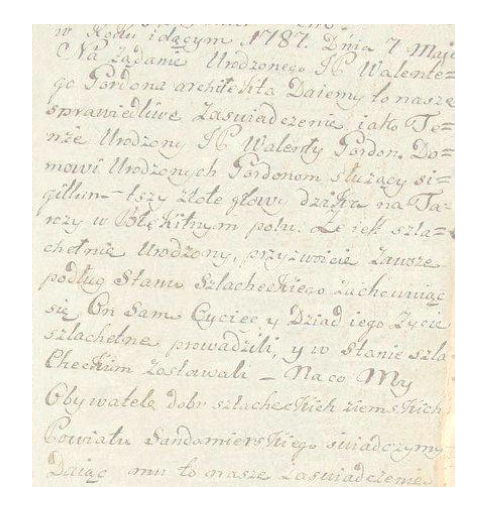 w Roku idącym 1787. Dnia 7 Maja
Na Żądanie Urodzonego JP Walente=
go Gordona architekta Daiemy to nasze
sprawiedliwe Zaswiadczenie, iako Te=
nże Urodzony JP Walenty Gordon. Do=
mowi Urodzonych Gordonom służący si=
gillum - trzy złote głowy dzika na Tar=
rczy w Błękitnym polu. Ze iest szla=
chetnie Urodzony, przyzwoicie zawsze
podług Stanu Szlacheckiego zachowuiąc
się On Sam Oyciec y Dziad iego Zycie
szlachetne prowadzili, y w stanie szla
checkim zostawali - Na co My
Obywatele dobr szlacheckich ziemskich
Powiatu Sandomierskiego swiadczymy
Daiąc mu to nasze zaswiadczenie